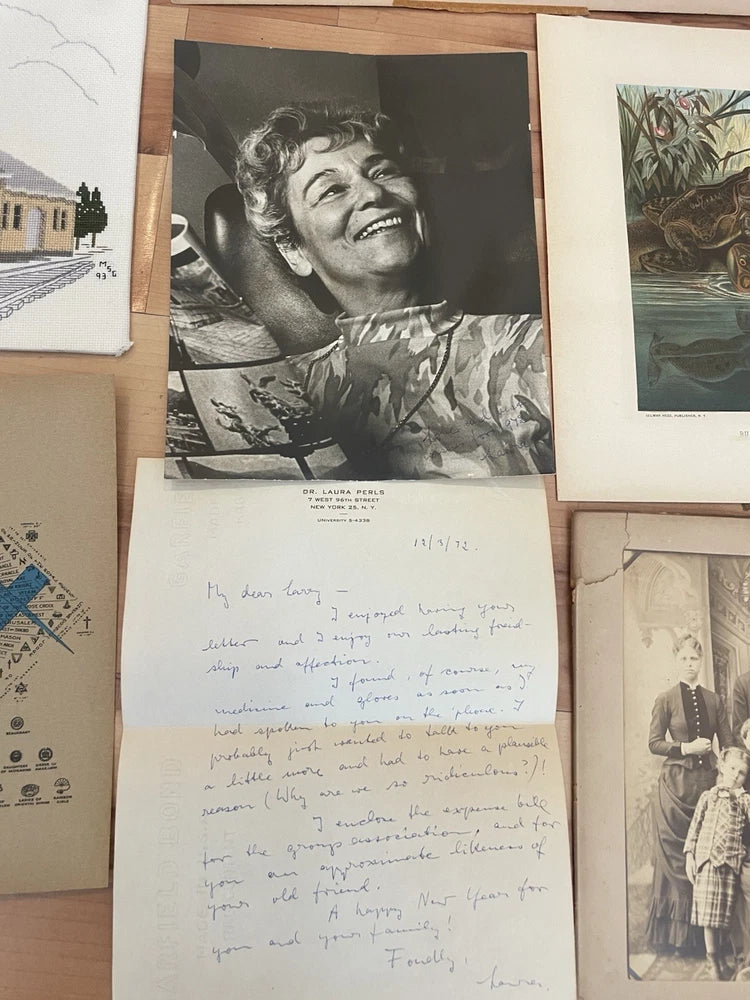 MSG
93
SELMAR HESS, PUBLISHER, N. Y.
DR. LAURA PERLS
7 WEST 96TH STREET
NEW YORK 25, N. Y.
UNIVERSITY 5-4338
12/3/72.
My dear Larry —
I enjoyed having your
letter and I enjoy our lasting friend-
ship and affection.
I found, of course, my
medicine and gloves as soon as I
had spoken to you on the 'phone. I
probably just wanted to talk to you
a little more and had to have a plausible
reason (Why are we so ridiculous?)!
I enclose the expense bill
for the group association, and for
you an approximate likeness of
your old friend.
A happy New Year for
you and your family!
Fondly,
Laura.
ROSE CROIX
MASON
BEAUCEANT
DAUGHTERS
OF MOKANNA
LADIES OF
ORIENTAL SHRINE
RAINBOW
GIRLS